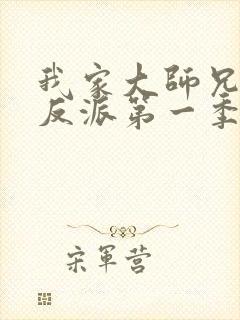 我家大師兄
反派第一季
宋軍营